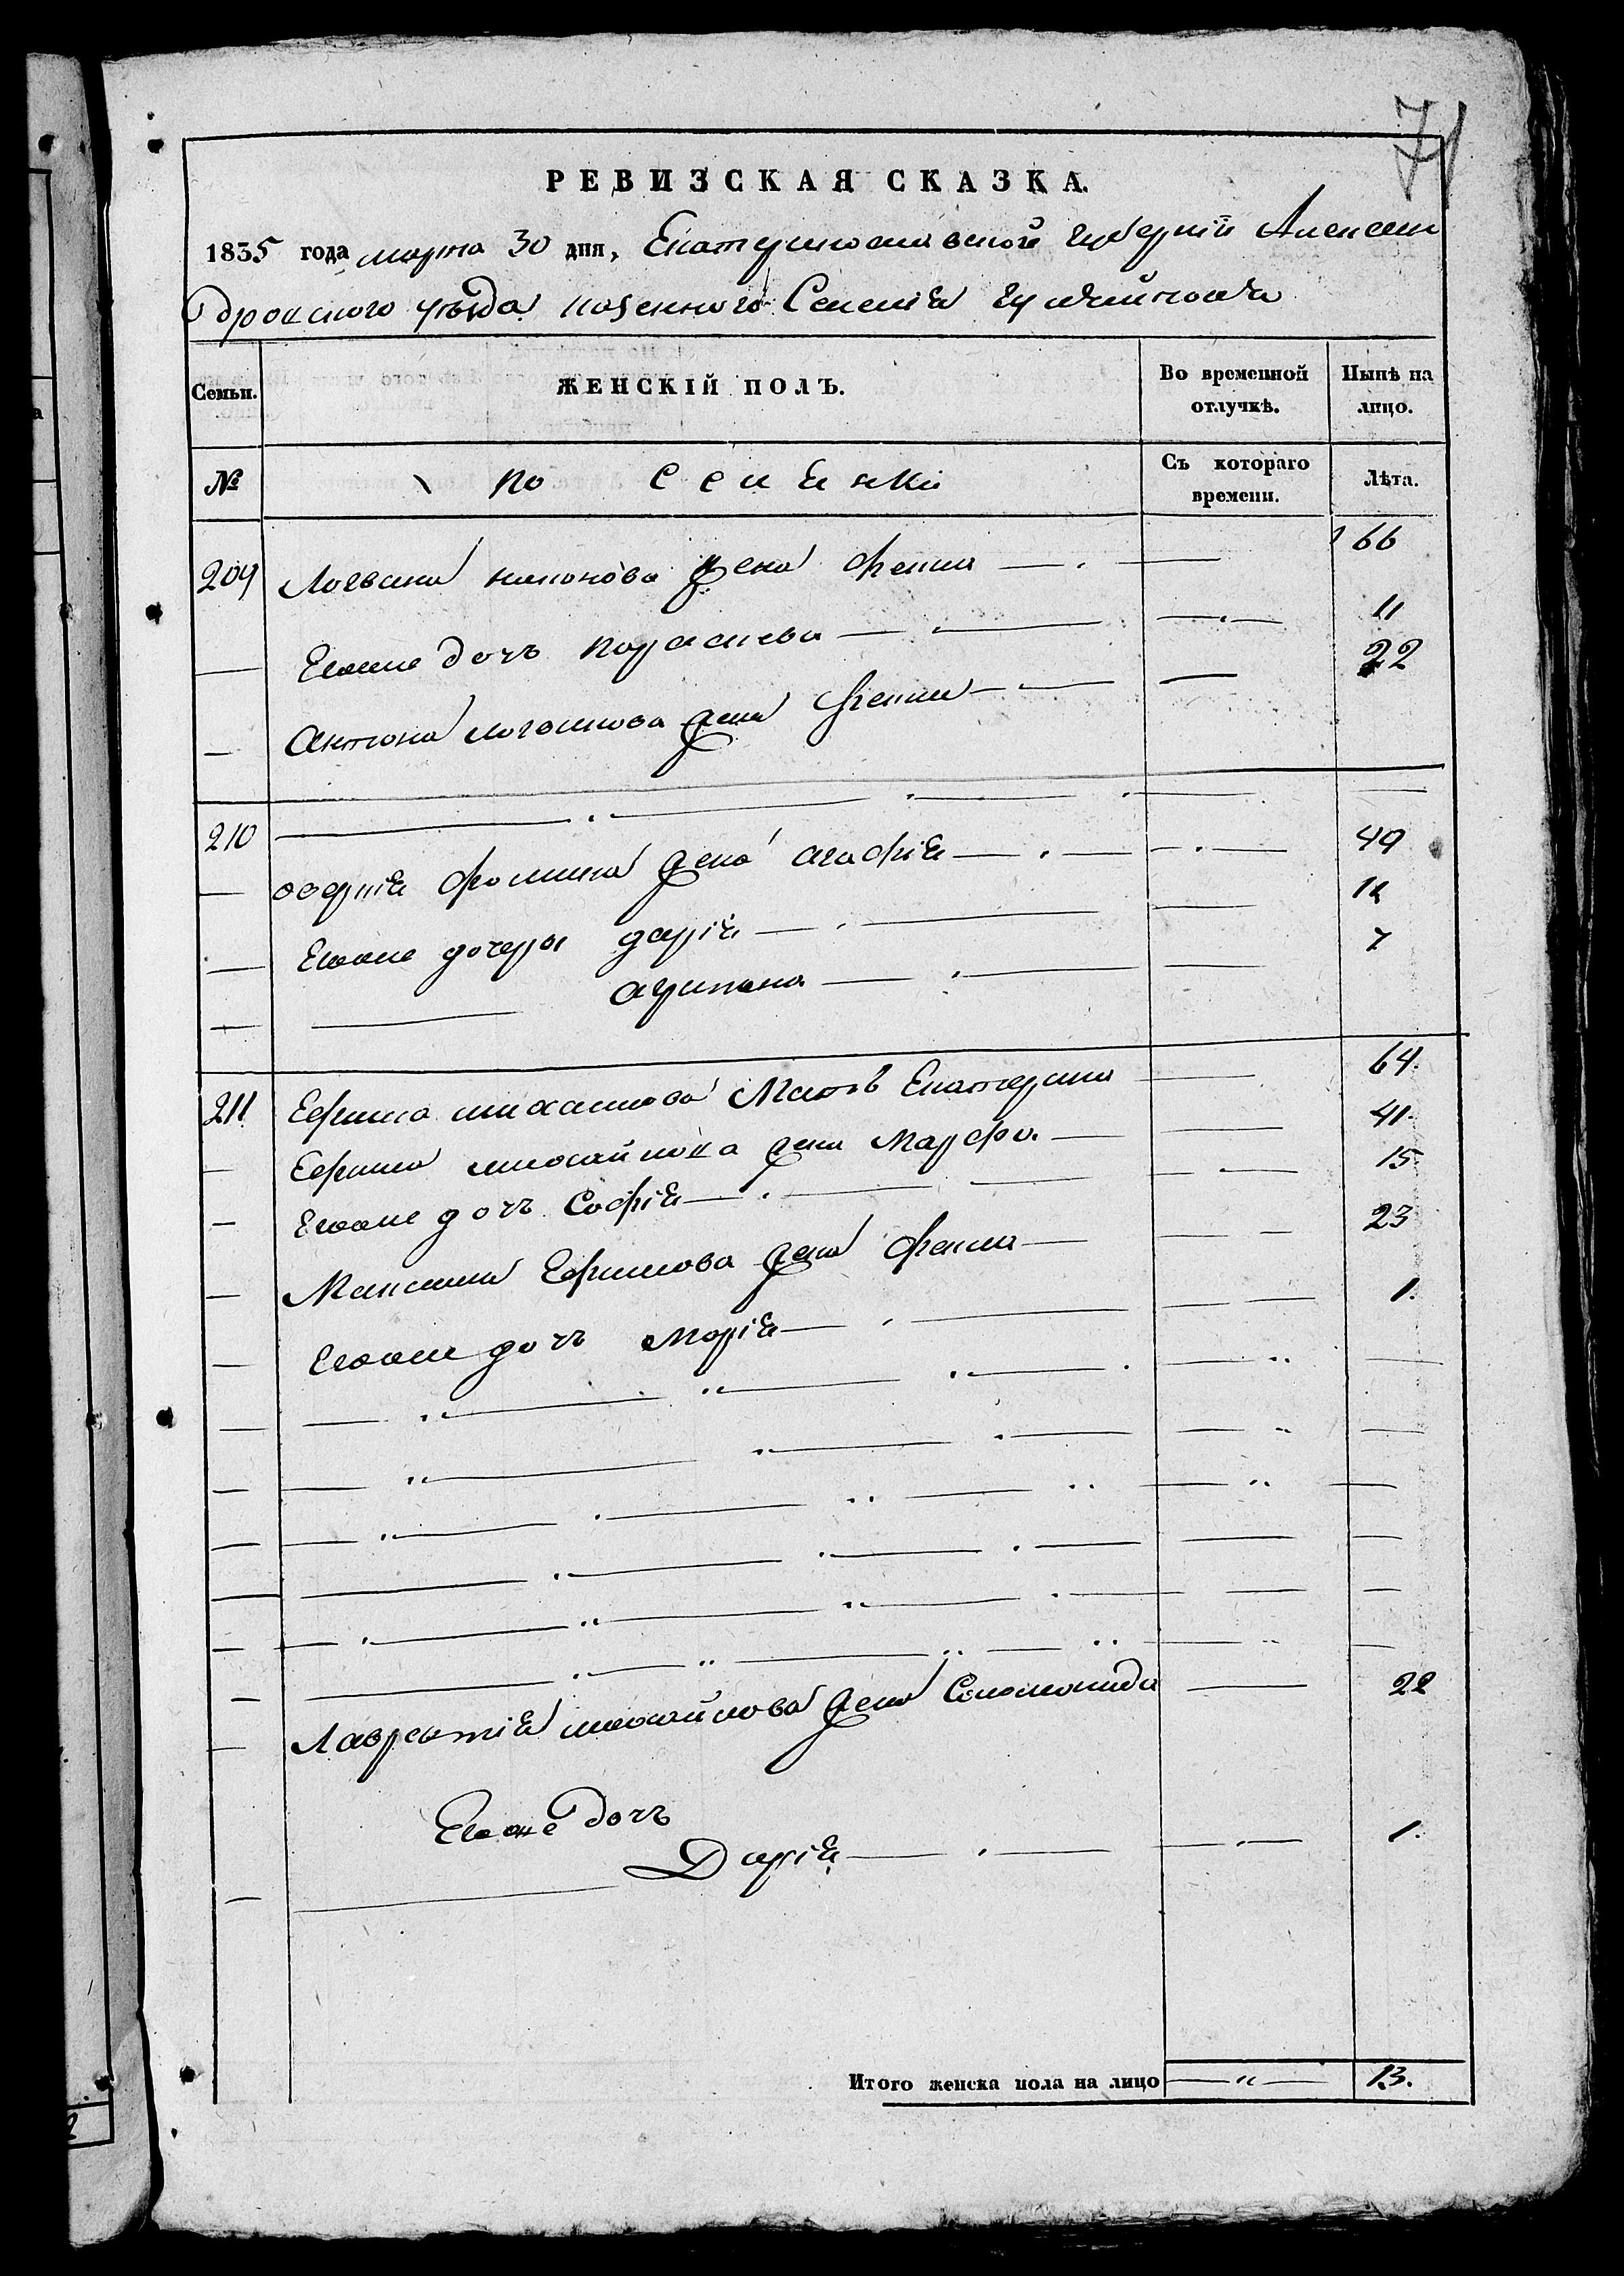 71
РЕВИЗСКАЯ СКАЗКА.
1835 года марта 30 дня, Екатеринославской губернии Алексан
дровского уѣзда казенного Селенія
Семьи. ЖЕНСКІЙ ПОЛЪ. Во временной отлучкѣ. Нынѣ на лицо.
№ Съ котораго времени. Лѣта.
209 Логвина никонова жена Фенна 66
Егоже дочь параскева 11
Антона логвинова жена Фенна 22
210
фомина жена агафія 49
Егоже дочеры дарія 12
агрипина 7
211 Ефима михаилова Мать Екатерина 64.
Ефима михайлова жена Марфа 41.
Егоже дочь Софія 15
Максима Ефимова жена Фенна 23
Егоже дочь марія 1.
Лаврентія михайлова жена Соломонида 22
Егоже дочь
Дарія 1.
Итого женска пола на лицо 13.